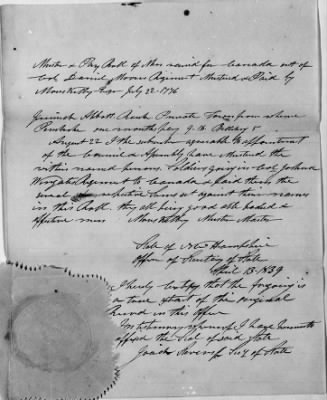 Muster & Pay Roll of Men raised for Canada out of
Col. Daniel Moores Regiment Mustered & Paid by
July 22 1776
Jeremiah Abbott Rank Private Town from whence
Pembroke one months pay
August 22 I the subscriber agreeable to appointment
of the Council & Assembly have Mustered the
within named persons Soldiers going in Col. Joshua
Wingates Regiment to Canada & paid them the
several & respective sums set against their names
in this Roll. they all being good able bodied &
effective men Muster Master
State of New Hampshire
Office of Secretary of State
April 13 1839
I hereby certify that the forgoing is
a true extract of the original
Record in this office
In testimony whereof I have hereunto
affixed the Seal of said State
Josiah Stevens Jr Secy of State